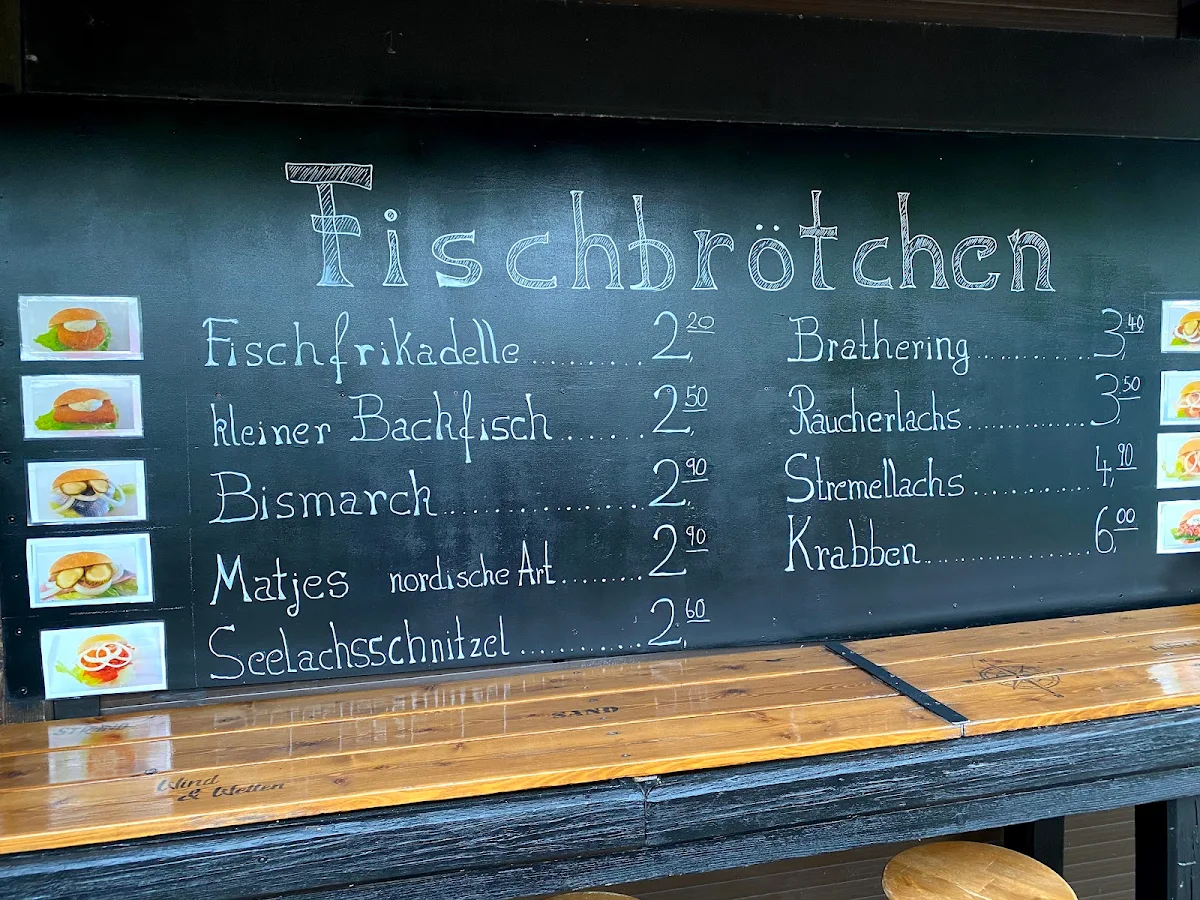 Fischbrötchen
Fischfrikadelle.............2,20
kleiner Backfisch.......2,50
Bismarck....................2,90
Matjes nordische Art........2,90
Seelachsschnitzel.............2,60
Brathering..............3,40
Räucherlachs...............3,50
Stremellachs...............4,90
Krabben.....................6,00
SAND
Wind
& Wellen